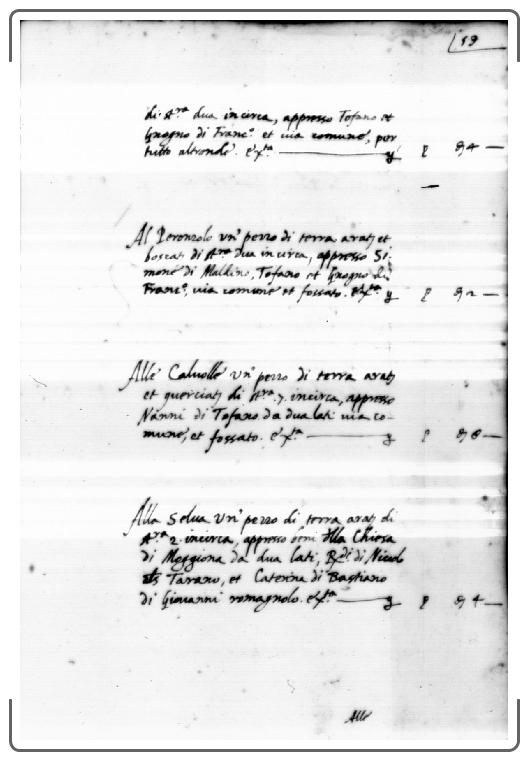 59
di st.ra dua incirca, appresso Tofano et
Gnogno di Franc.o et via comune, per
tutto altronde. et.ta — 4 —
Al Peronzolo un' pezzo di terra arat. et
boscat. di st.ra dua incirca, appresso Si
mone di Maldino, Tofano et Gnogno di
Franc.o, via comune et fossato. et.ta 2 —
Alle Calvolle un' pezzo di terra arat.
et querciat. di st.ra 7. incirca, appresso
Nanni di Tofano da dua lati via co-
mune, et fossato. et.ta — 8 —
Alla Selva un' pezzo di terra arat. di
st.ra 2. incirca, appresso beni della Chiesa
di Moggiona da dua lati, di Nicolo
Tarano, et Caterina di Bastiano
di Giovanni romagnolo. et.ta — 4 —
Alle